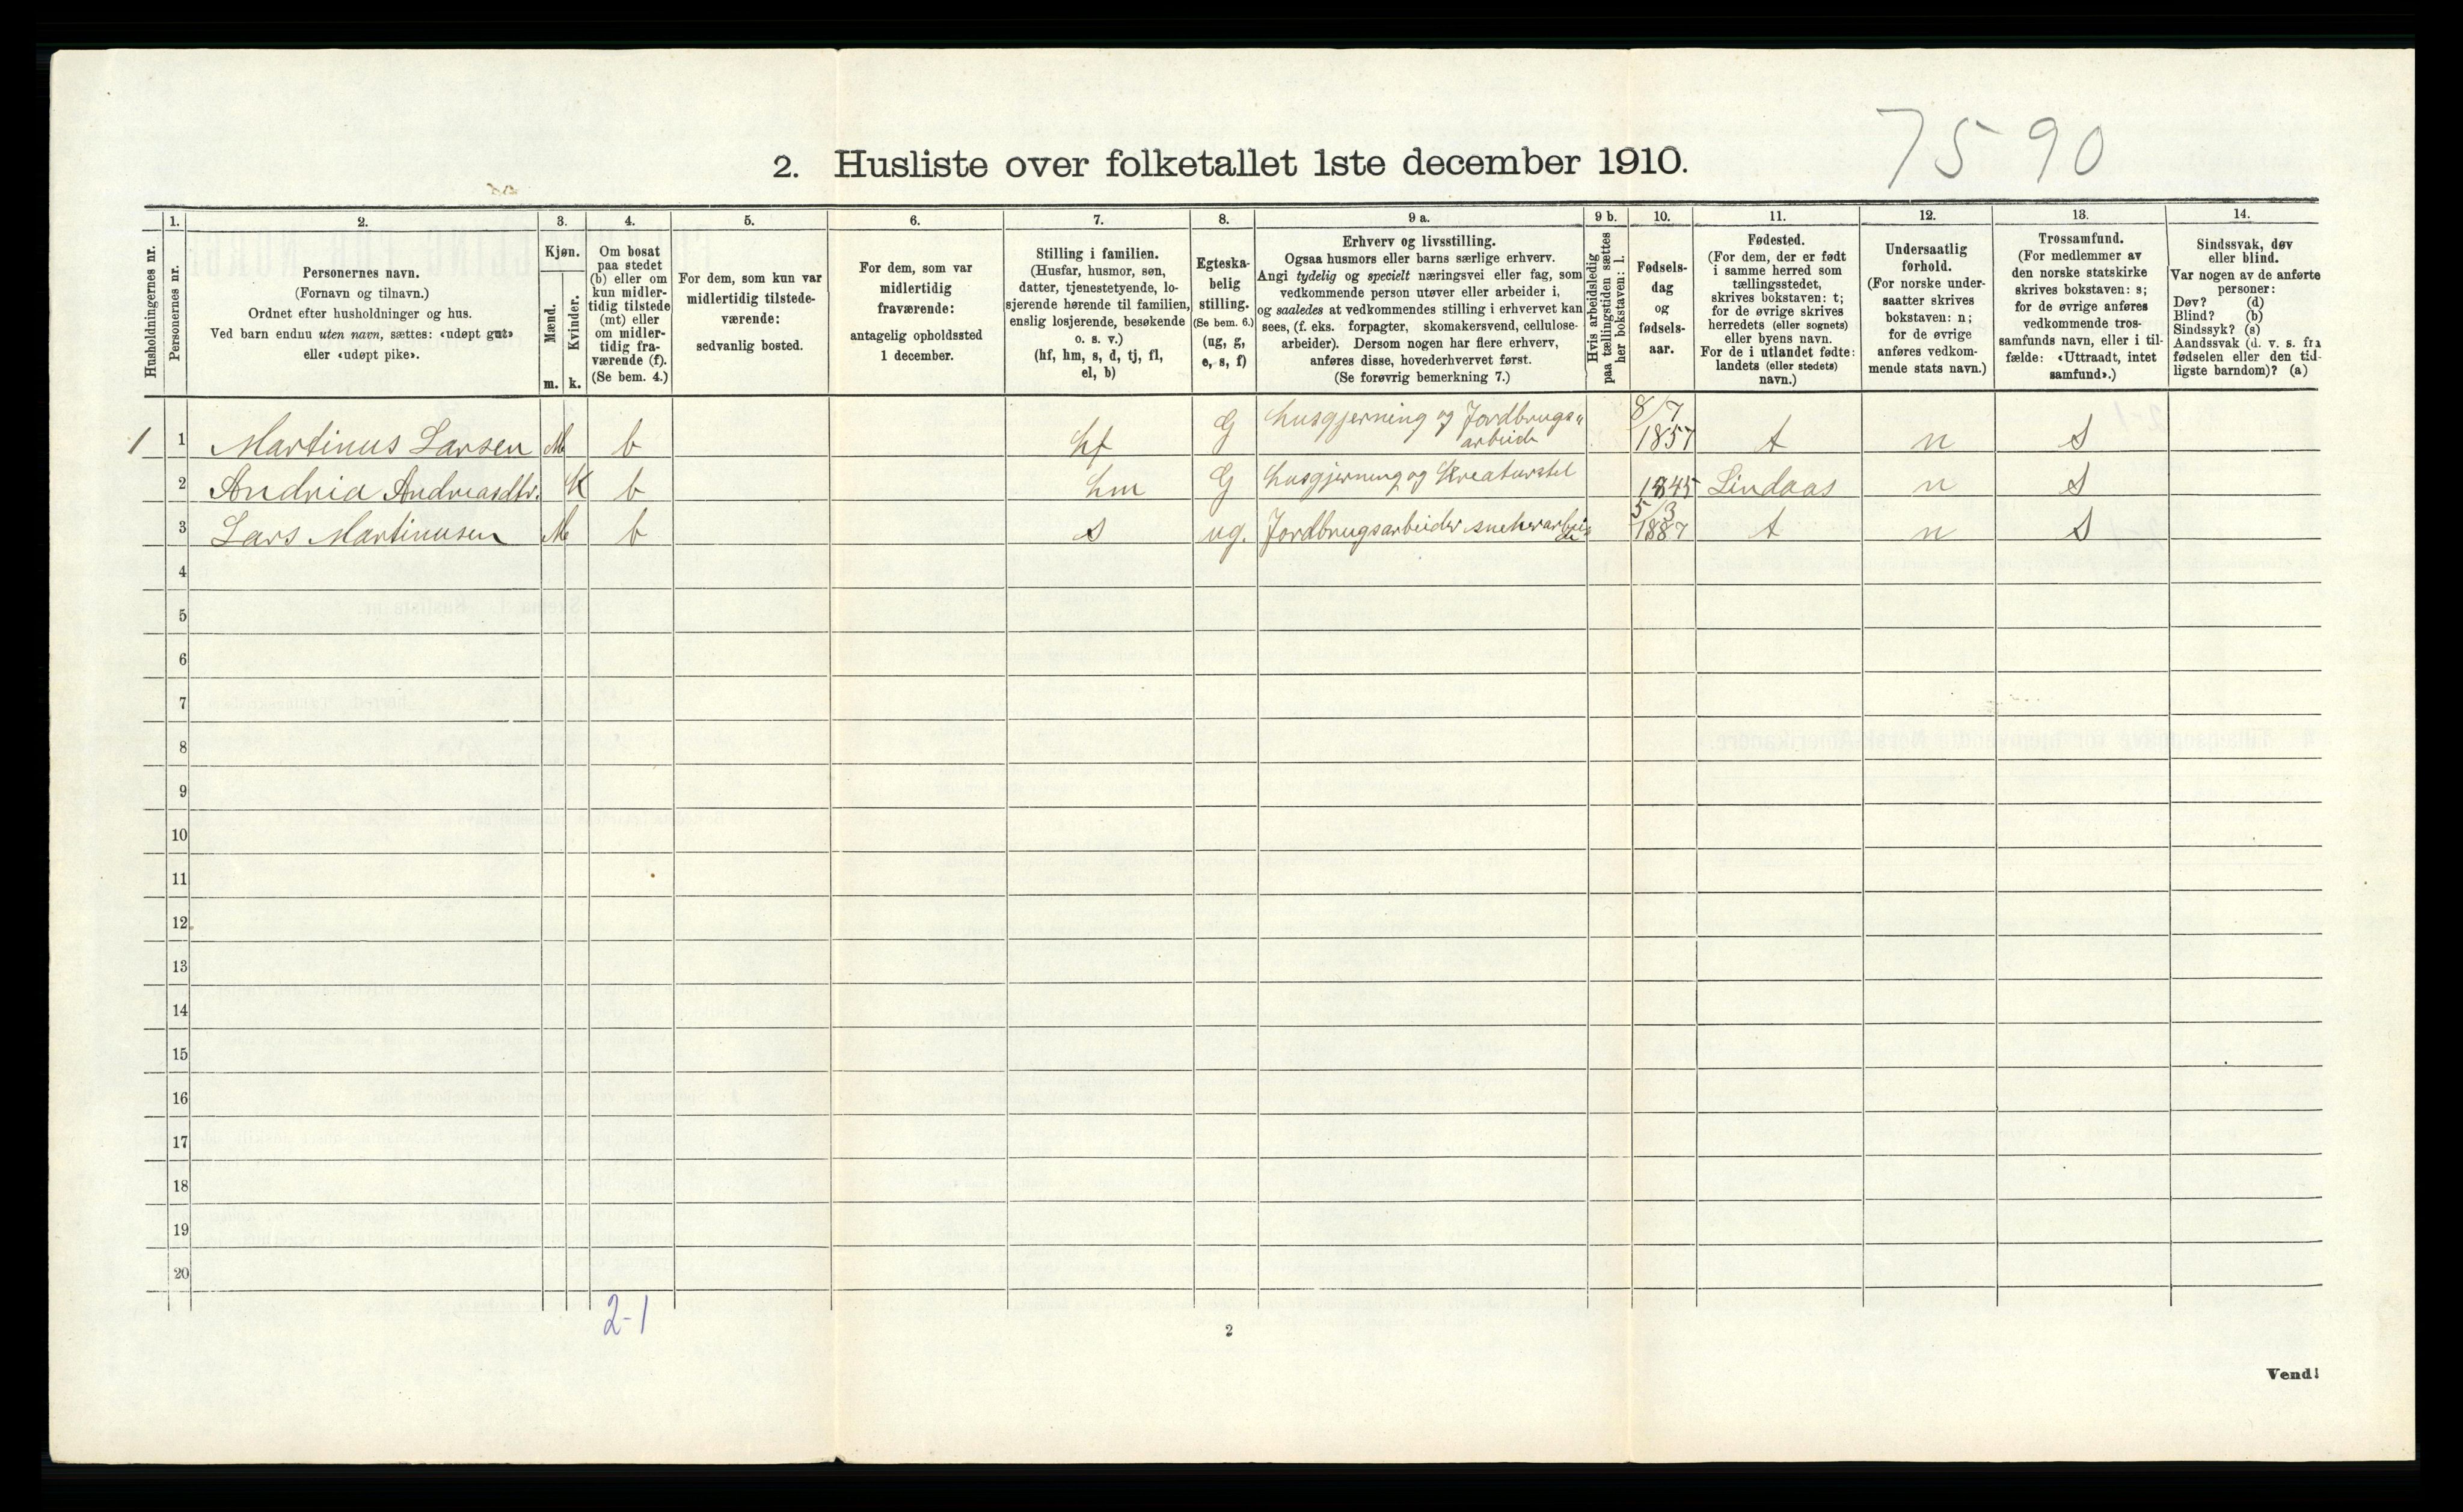 7590
2. Husliste over folketallet 1ste december 1910.
Husholdningernes nr.
1.
Personernes nr.
2.
Personernes navn.
(Fornavn og tilnavn.)
Ordnet efter husholdninger og hus.
Ved barn endnu uten navn, sættes: «udøpt gut»
eller «udøpt pike».
3.
Kjøn.
Mænd.
Kvinder.
m. k.
4.
Om bosat
paa stedet
(b) eller om
kun midler-
tidig tilstede
(mt) eller
om midler-
tidig fra-
værende (f).
(Se bem. 4.)
5.
For dem, som kun var
midlertidig tilstede-
værende:
sedvanlig bosted.
6.
For dem, som var
midlertidig
fraværende:
antagelig opholdssted
1 december.
7.
Stilling i familien.
(Husfar, husmor, søn,
datter, tjenestetyende, lo-
sjerende hørende til familien,
enslig losjerende, besøkende
o. s. v.)
(hf, hm, s, d, tj, fl,
el, b)
8.
Egteska-
belig
stilling.
(Se bem. 6.)
(ug, g,
e, s, f)
9 a.
Erhverv og livsstilling.
Ogsaa husmors eller barns særlige erhverv.
Angi tydelig og specielt næringsvei eller fag, som
vedkommende person utøver eller arbeider i,
og saaledes at vedkommendes stilling i erhvervet kan
sees, (f. eks. forpagter, skomakersvend, cellulose-
arbeider). Dersom nogen har flere erhverv,
anføres disse, hovederhvervet først.
(Se forøvrig bemerkning 7.)
9 b.
Hvis arbeidsledig
paa tællingstiden sættes
her bokstaven: l.
10.
Fødsels-
dag
og
fødsels-
aar.
11.
Fødested.
(For dem, der er født
i samme herred som
tællingsstedet,
skrives bokstaven: t;
for de øvrige skrives
herredets (eller sognets)
eller byens navn.
For de i utlandet fødte:
landets (eller stedets)
navn.)
12.
Undersaatlig
forhold.
(For norske under-
saatter skrives
bokstaven: n;
for de øvrige
anføres vedkom-
mende stats navn.)
13.
Trossamfund.
(For medlemmer av
den norske statskirke
skrives bokstaven: s;
for de øvrige anføres
vedkommende tros-
samfunds navn, eller i til-
fælde: «Uttraadt, intet
samfund».)
14.
Sindssvak, døv
eller blind.
Var nogen av de anførte
personer:
Døv? (d)
Blind? (b)
Sindssyk? (s)
Aandssvak (d. v. s. fra
fødselen eller den tid-
ligste barndom)? (a)
1 1 Martinus Larsen M b hf G husgjerning og Jordbrugs- arbeide 8/7 1857 t n S
2 Andria Andreasdtr. K b hm G husgjerning og Kreaturstel 1845 Lindaas n S
3 Lars Martinusen M b s ug. Jordbrugsarbeider snekerarbei- de 5/3 1887 t n S
4
5
6
7
8
9
10
11
12
13
14
15
16
17
18
19
20
2-1
2
Vend!